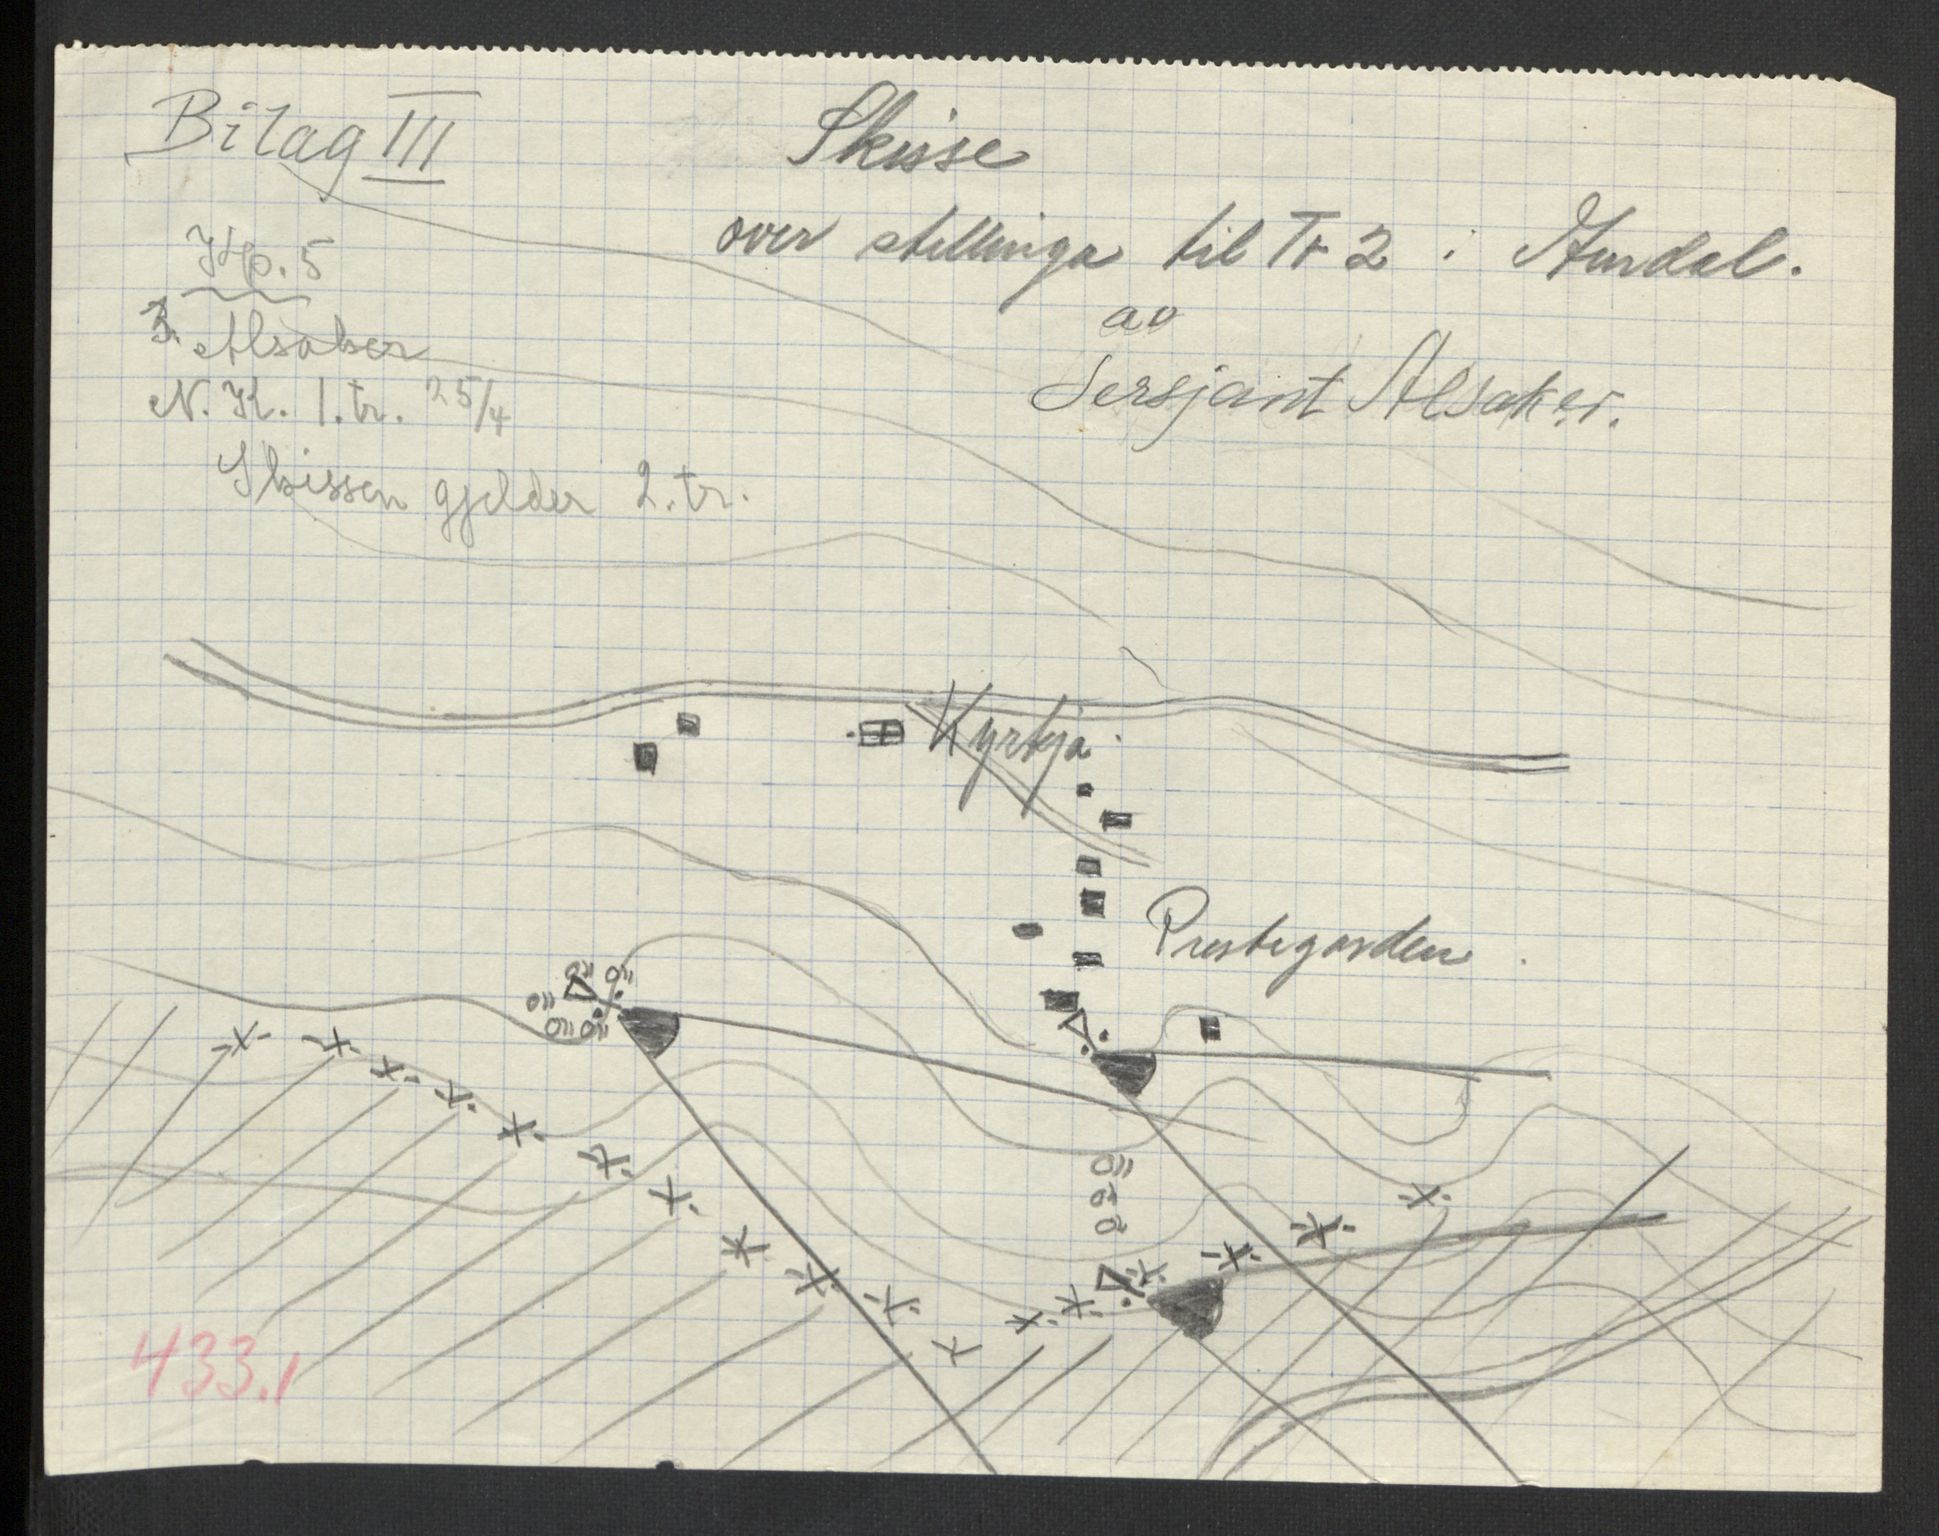 Bilag III
Skisse
over stillinga til Tr 2 i Aurdal.
av
Sersjant Alsaker.
Kp. 5
3. Alsaker
N. K. 1. tr. 25/4
Skissen gjelder 2. tr.
Kyrkja
Prestegarden.
433.1